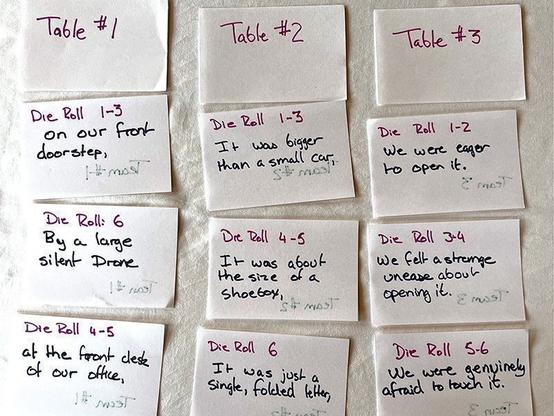 Table #1
Die Roll 1-3
on our front
doorstep,
Team #1
Die Roll: 6
By a large
silent Drone
Team #1
Die Roll 4-5
at the front desk
of our office,
#1
Table #2
Die Roll 1-3
It was bigger
than a small car,
Team #2
Die Roll 4-5
It was about
the size of a
shoebox,
Team #2
Die Roll 6
It was just a
single, folded letter,
#2
Table #3
Die Roll 1-2
We were eager
to open it.
Team 3
Die Roll 3-4
We felt a strange
unease about
opening it.
Team 3
Die Roll 5-6
We were genuinely
afraid to touch it.
Team 3